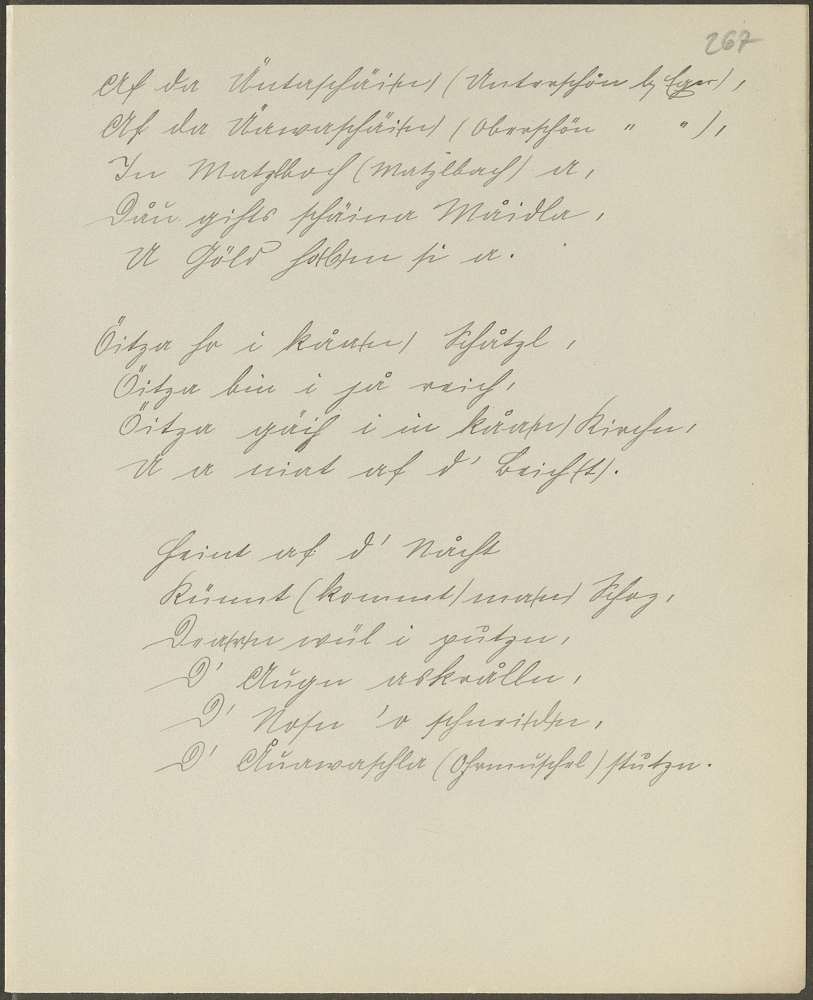 267
Af da Üntaschäi(n) (Unterschön b. Eger),
Af da Üawaschäi(n) (Oberschön " "),
In Matzlboch (Matzlbach) a,
Dåu gihts schäina Måidla,
U Göld ho(b)m si a.
Öitza ho i kåa(n) Schåtzl,
Öitza bin i jå reich,
Öitza gäih i in kåa(n) Kirchn,
U a niat af d' Beich(t).
Heint af d' Nåcht
Künnt (kommt) ma(n) Schoz,
Dea(r)n wül i putzn,
D' Augn askrålln,
D' Nosn 'o schnei(d)n,
D' Åuawaschla (Ohrmuschel) stutzn.